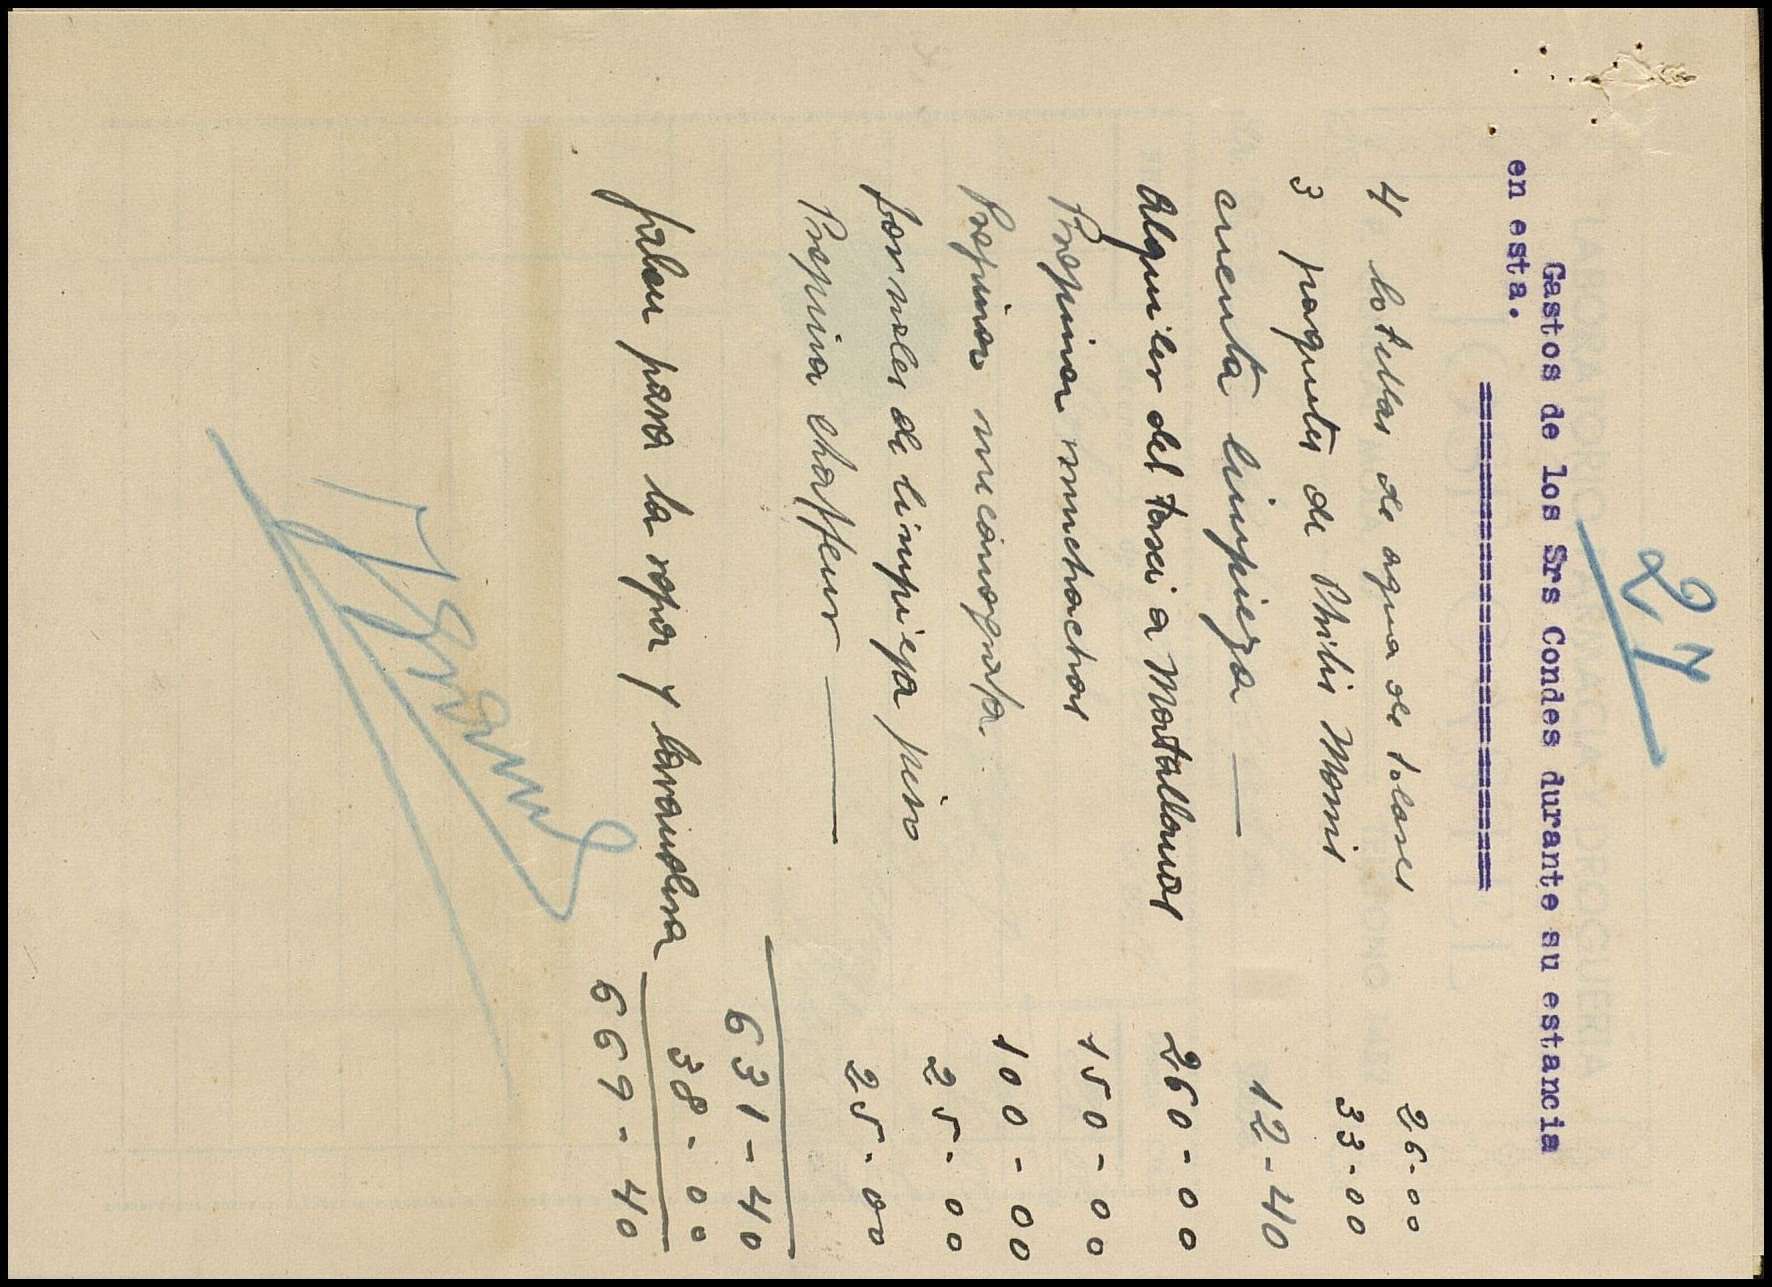 27
Gastos de los Srs Condes durante su estancia
en esta.
==============================
4 botellas de agua de solares 26-00
3 paquetes de Philis Morris 33-00
cuenta limpieza — 12-40
Alquiler del taxi a Montallanos 260-00
Propinas muchachas 150-00
Propinas mecanografa 100-00
Jornales de limpieza piso 25-00
Propina chaffeur — 25-00
631-40
jabon para la ropa y lavandera 38-00
669-40